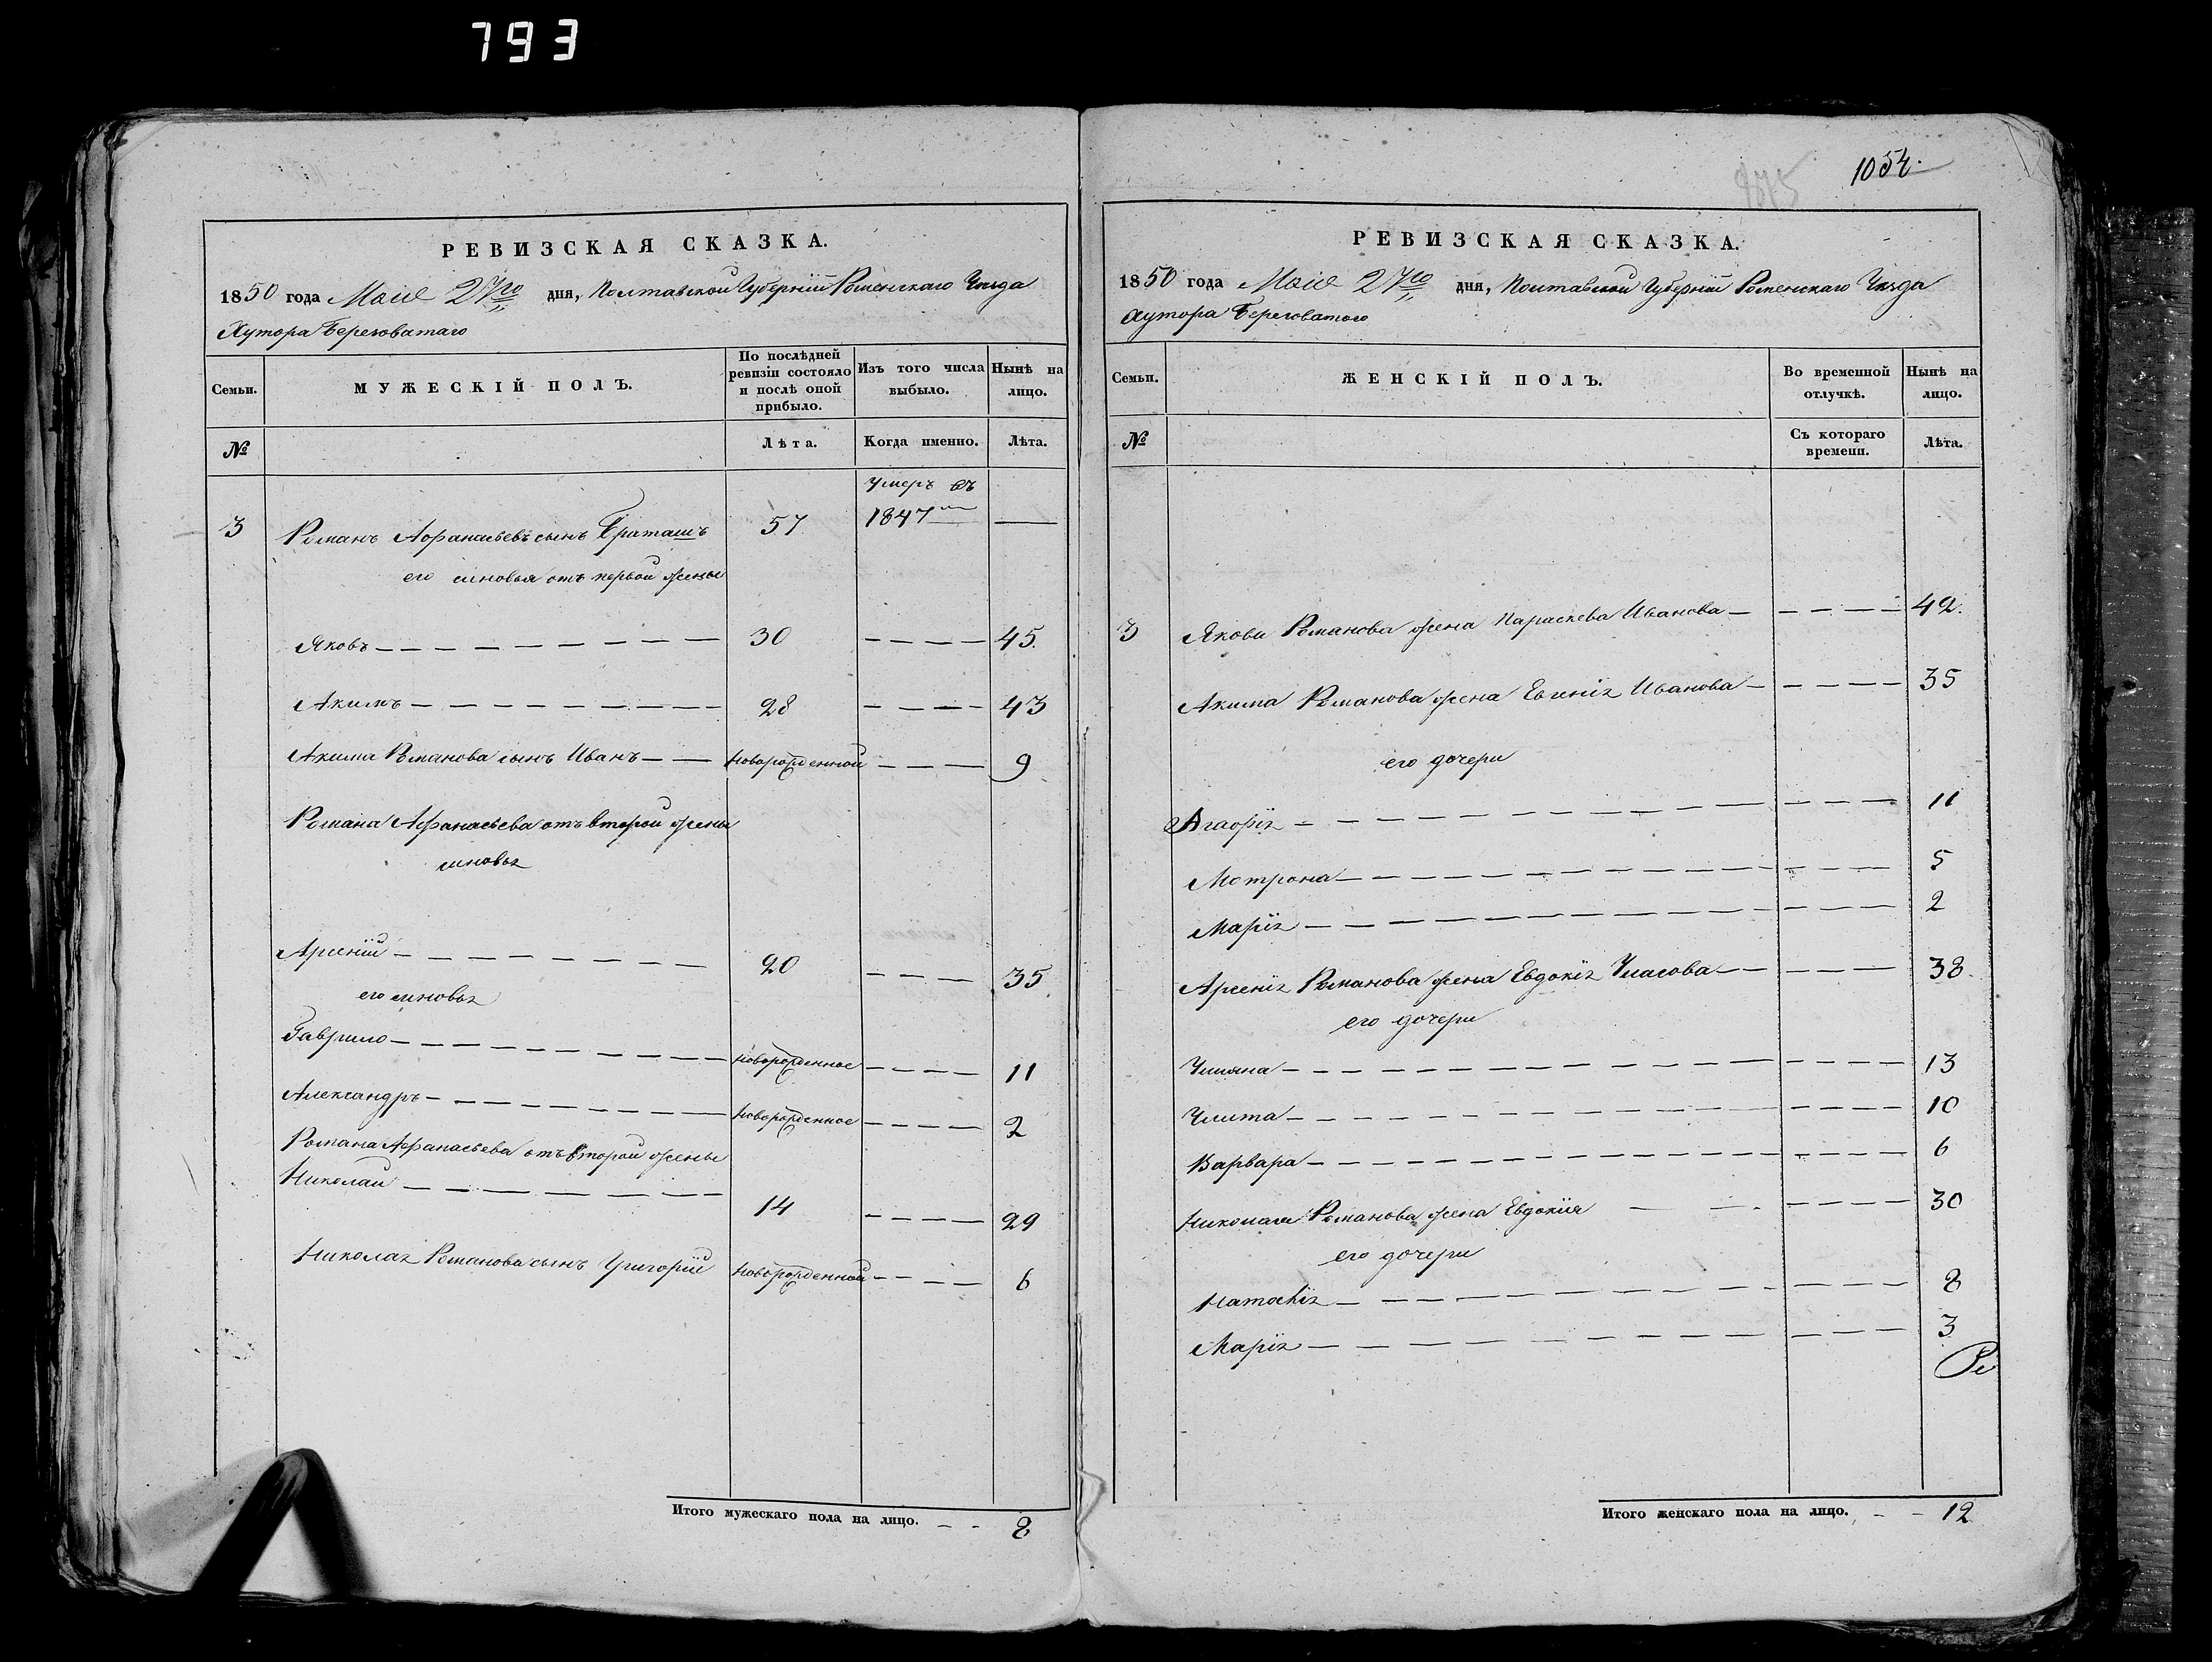 793
1054.
975
РЕВИЗСКАЯ СКАЗКА.
1850 года Мaія 27го дня, Полтавской Губерніи Роменского Уезда
Хутора Березоватаго
Семьи. МУЖЕСКІЙ ПОЛЪ. По послѣдней ревизіи состояло и послѣ оной прибыло. Изъ того числа выбыло. Нынѣ на лицо.
№ Лѣта. Когда именно. Лѣта.
умеръ въ
3 Романъ Афанасьевъ сынъ 57 1847 —
его синовья отъ первой жены
Яковъ 30 45.
Акимъ 28 43
Акима Романова сынъ Иванъ новорожденной 9
Романа Афанасьева отъ второй жены
синовья
Арсеній 20 35
его синовья
Гаврило новорожденное 11
Александръ новорожденное 2
Романа Афанасьева отъ второй жены
Николай 14 29
Николая Романова сынъ Григорій новорожденной 6
Итого мужескаго пола на лицо. 8
РЕВИЗСКАЯ СКАЗКА.
1850 года Мaія 27го дня, Полтавской Губерніи Роменского Уезда
хутора Березоватого
Семьи. ЖЕНСКІЙ ПОЛЪ. Во временной отлучкѣ. Нынѣ на лицо.
№ Съ котораго времени. Лѣта.
3 Якова Романова жена Параскева Иванова 42.
Акима Романова жена Евгенія Иванова 35
его дочери
Агафія 11
Мотрона 5
Марія 2
Арсенія Романова жена Евдокія Уласова 38.
его дочери
Ульяна 13
Улита 10
Варвара 6
Николая Романова жена Евдокія 30
его дочери
Наталія 8
Марія 3
Ре
Итого женскаго пола на лицо. 12